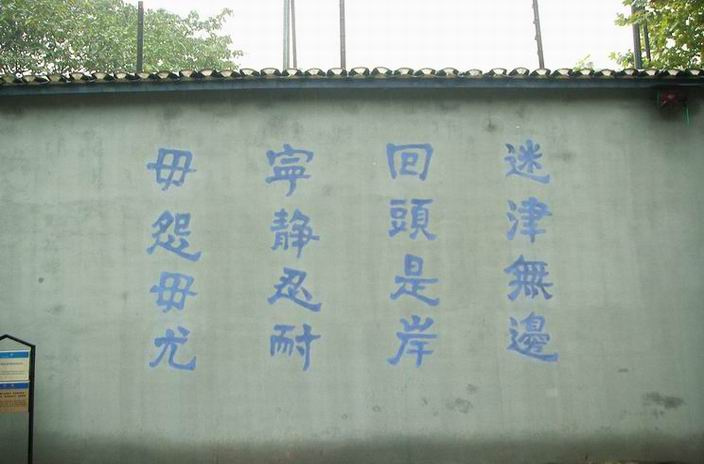 迷津無邊
回頭是岸
寜靜忍耐
毋怨毋尤